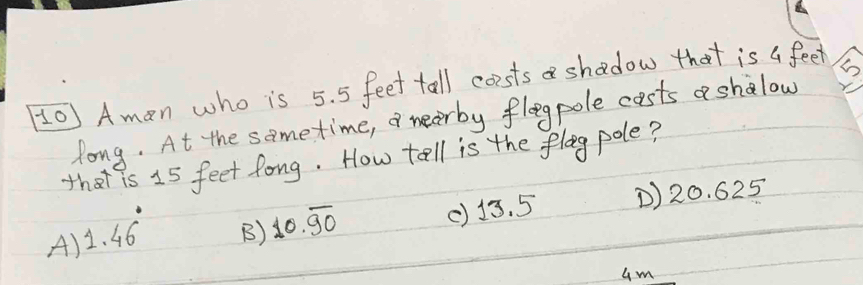 10) A man who is 5.5 feet tall casts a shadow that is 4 feet
long. At the sametime, a nearby flagpole casts a shalow
that is 15 feet long. How tall is the flag pole?
A) 1.46̇ B) 10.9̅0̅ C) 13.5 D) 20.625
4m
15